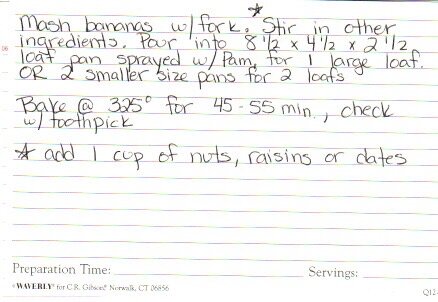 Mash bananas w/ fork. ☆ Stir in other
ingredients. Pour into 8 1/2 x 4 1/2 x 2 1/2
loaf pan sprayed w/ Pam, for 1 large loaf.
OR 2 smaller size pans for 2 loafs
Bake @ 325° for 45-55 min., check
w/ toothpick
☆ add 1 cup of nuts, raisins or dates
Preparation Time:
Servings:
WAVERLY® for C.R. Gibson® Norwalk, CT 06856
Q12